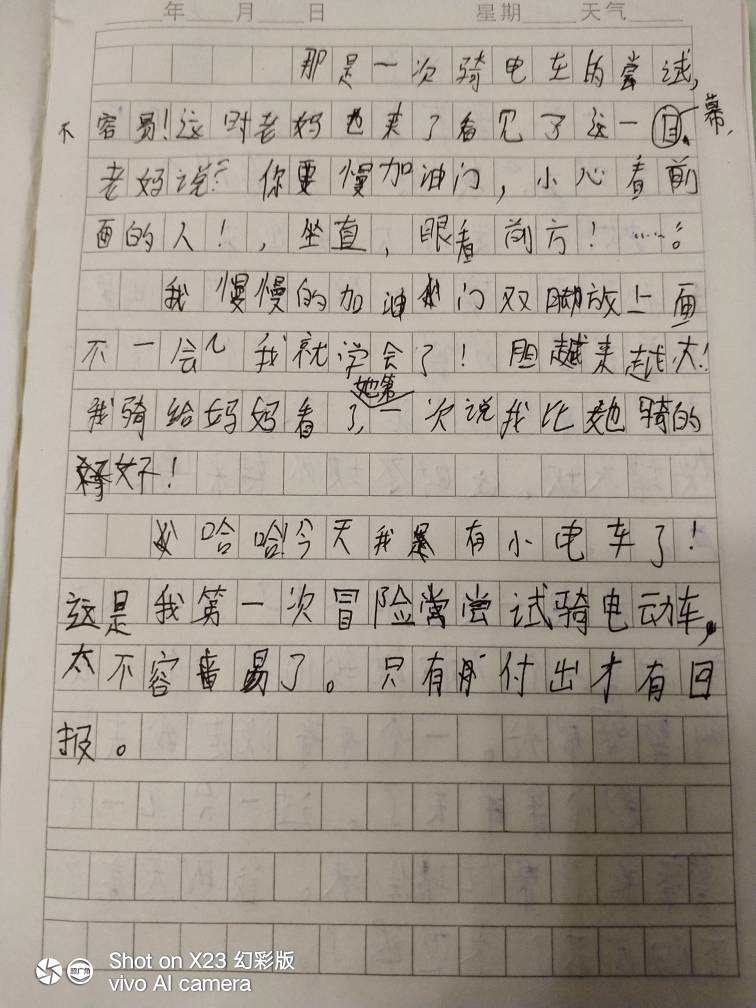 年 月 日 星期 天气
那是一次骑电车的尝试,
不容易!这时老妈也来了看见了这一幕,
老妈说:"你要慢加油门,小心看前
面的人!,坐直,眼看前方!……。
我慢慢的加油门双脚放上面
不一会儿我就学会了!胆越来越大!
我骑给妈妈看了,她第一次说我比她骑的
好!
哈哈!今天我有小电车了!
这是我第一次冒险尝试骑电动车,
太不容易了。只有付出才有回
报。
Shot on X23 幻彩版
vivo AI camera